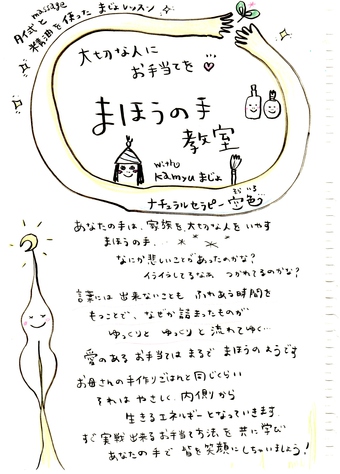 massage
タイ式と
精油を使った まじょレッスン
大切な人に
お手当てを
まほうの手
教室
with
Kamyu まじょ
ナチュラルセラピー 空色
そら いろ
あなたの手は、家族を、大切な人を いやす
まほうの手.
なにか悲しいことがあったのかな?
イライラしてるなぁ つかれてるのかな?
言葉には 出来ないことも ふれあう時間を
もつことで、なぜか 詰まったものが
ゆっくりと ゆっくりと 流れてゆく…
愛のある お手当ては まるで まほうのようです
お母さんの 手作りごはんと 同じくらい
それは やさしく、内側から
生きるエネルギーと なっていきます.
すぐ 実戦出来る お手当て方法を 共に学び
あなたの手で 皆を笑顔に しちゃいましょう!